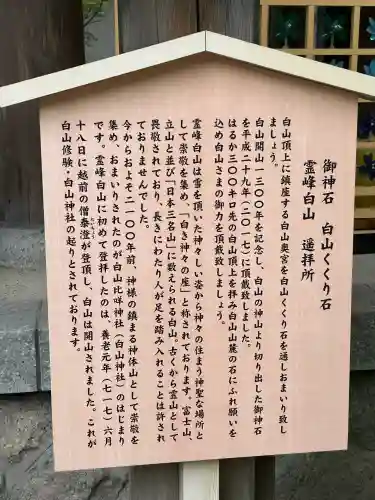 御神石 白山くくり石
霊峰白山 遥拝所
白山頂上に鎮座する白山奥宮を白山くくり石を通しおまいり致し
ましょう。
白山開山一三〇〇年を記念し、白山の神山より切り出した御神石
を平成二十九年(二〇一七)に頂戴致しました。
はるか三〇〇キロ先の白山頂上を拝み白山山麓の石にふれ願いを
込め白山さまの御力を頂戴致しましょう。
霊峰白山は雪を頂いた神々しい姿から神々の住まう神聖な場所と
して崇敬を集め、「白き神々の座」と称されております。富士山、
立山と並び「日本三名山」に数えられる白山。古くから霊山として
畏敬されており、長きにわたり人が足を踏み入れることは許され
ておりませんでした。
今からおよそ二一〇〇年前、神様の鎮まる神体山として崇敬を
集め、おまいりされたのが白山比咩神社(白山神社)のはじまり
です。霊峰白山に初めて登拝したのは、養老元年(七一七)六月
十八日に越前の僧泰澄が登頂し、白山は開山されました。これが
白山修験・白山神社の起りとされております。